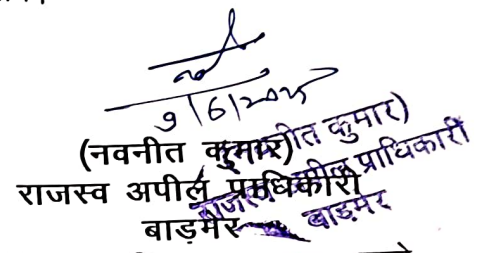 9/6/2025
(नवनीत कुमार)
राजस्व अपील प्राधिकारी
बाड़मेर
(नवनीत कुमार)
राजस्व अपील प्राधिकारी
बाड़मेर